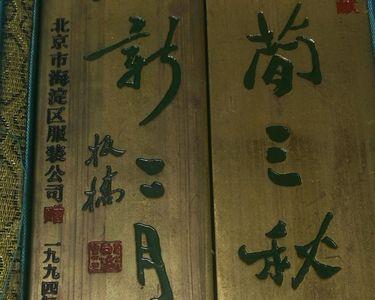 简三秋
新二月
板橋
北京市海淀区服装公司 一九九四